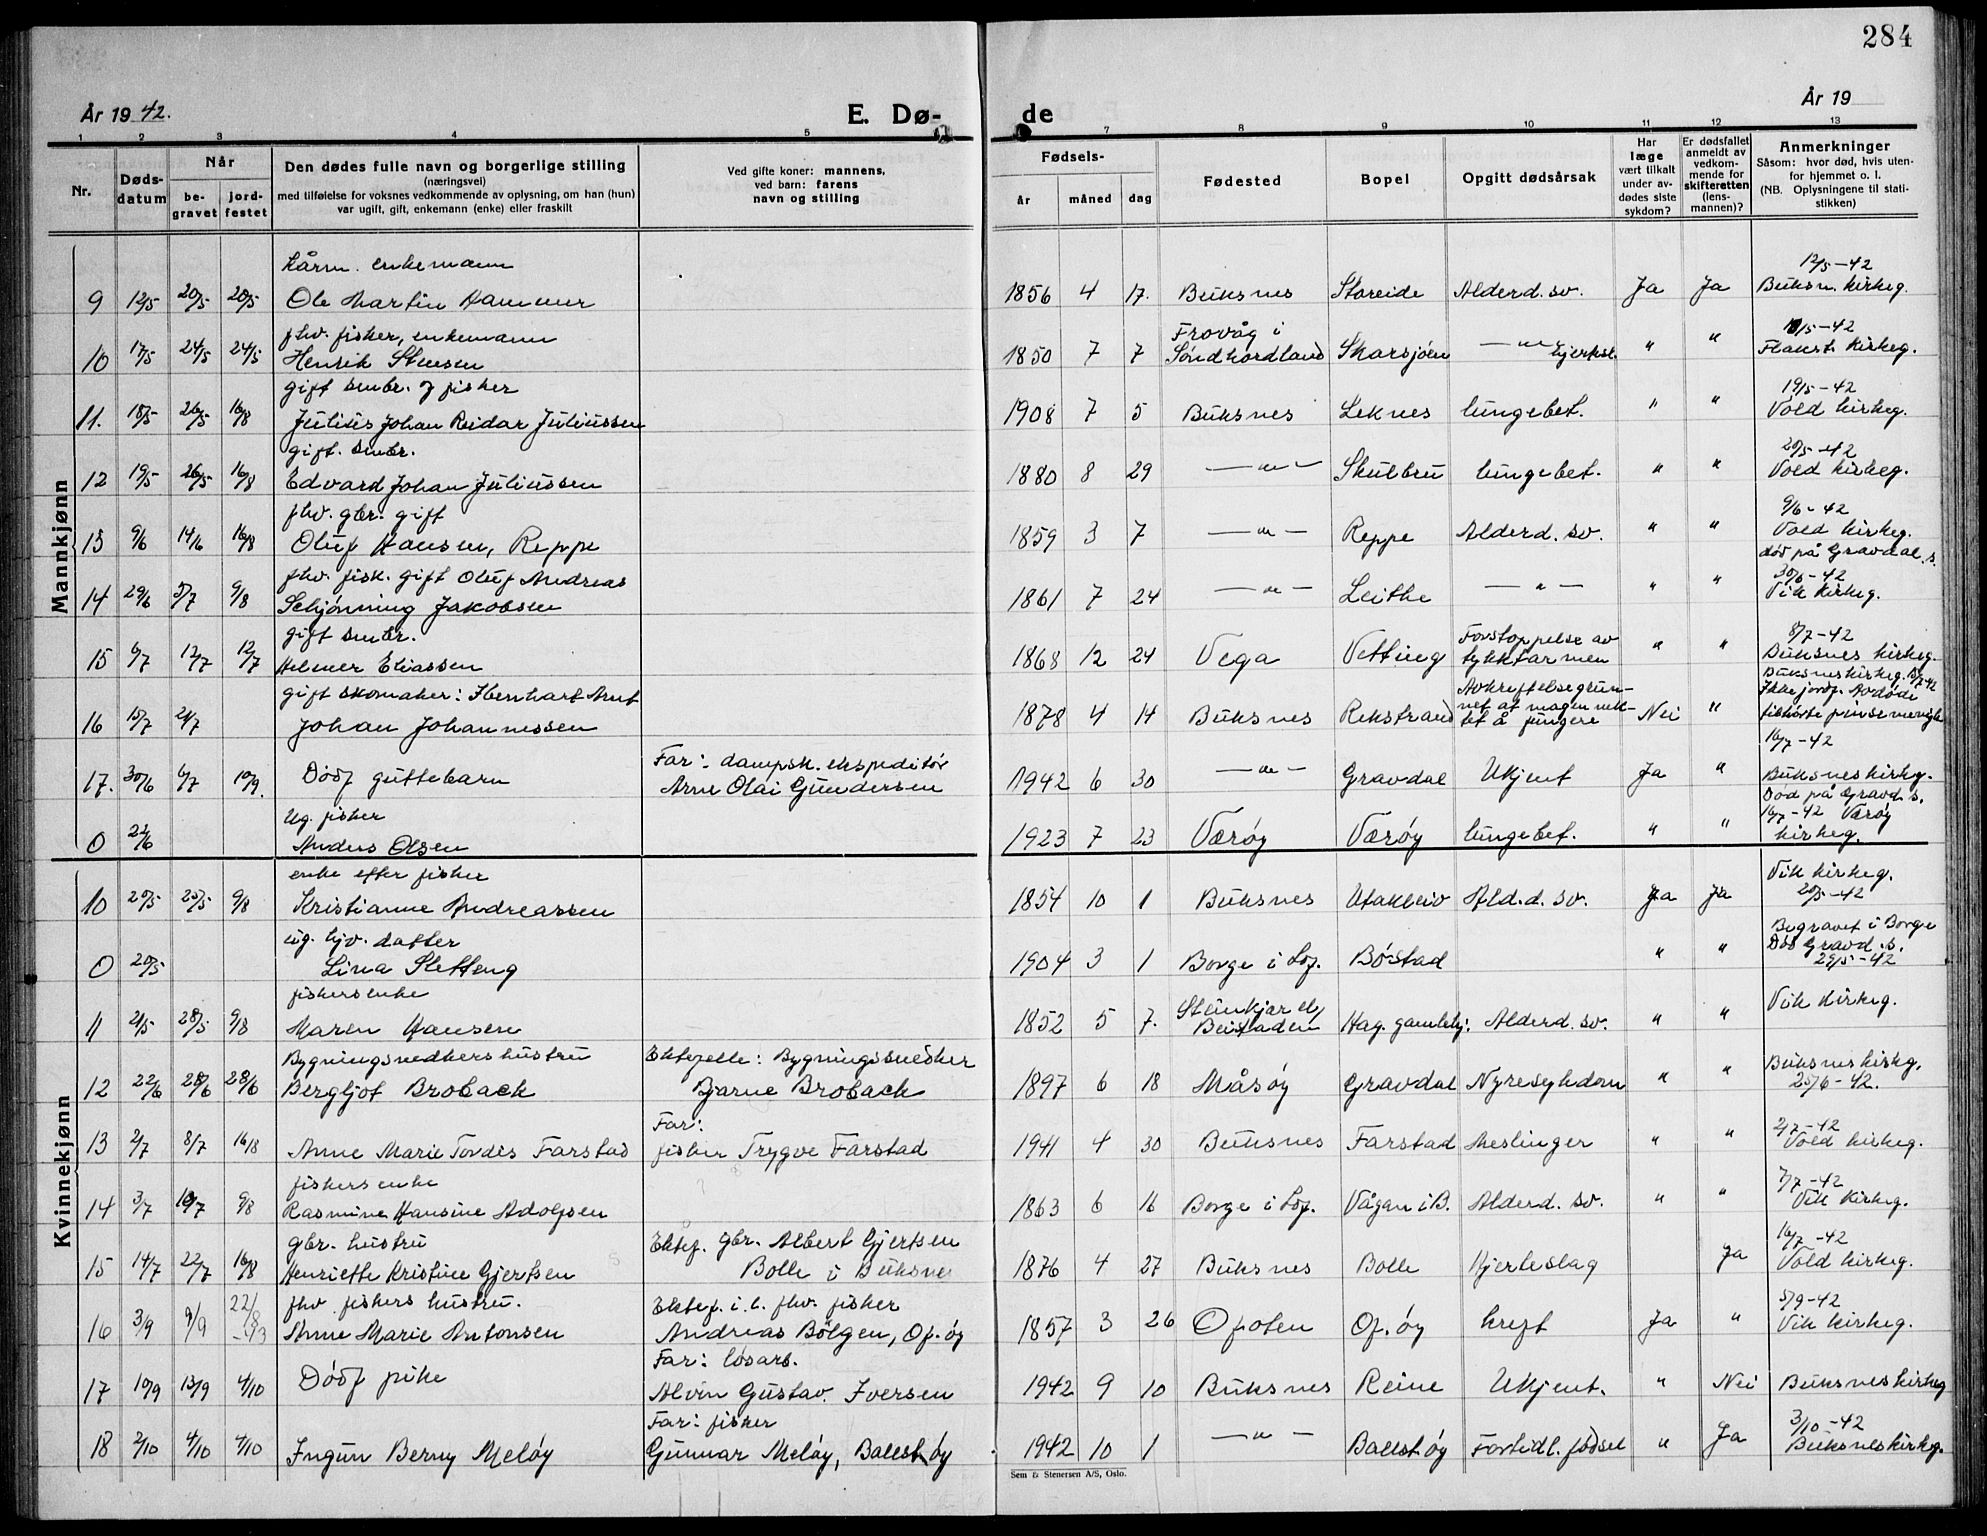 284
År 1942.
E. Dø-
de
År 19
1 2 3 4 5 7 8 9 10 11 12 13
Nr.
Døds-
datum
Når
be-
gravet
jord-
festet
Den dødes fulle navn og borgerlige stilling
(næringsvei)
med tilføielse for voksnes vedkommende av oplysning, om han (hun)
var ugift, gift, enkemann (enke) eller fraskilt
Ved gifte koner: mannens,
ved barn: farens
navn og stilling
Fødsels-
år måned dag
Fødested
Bopel
Opgitt dødsårsak
Har
læge
vært tilkalt
under av-
dødes siste
sykdom?
Er dødsfallet
anmeldt av
vedkom-
mende for
skifteretten
(lens-
mannen)?
Anmerkninger
Såsom: hvor død, hvis uten-
for hjemmet o. l.
(NB. Oplysningene til stati-
stikken)
Mannkjønn
kårm. enkemann 12/5-42
9 12/5 20/5 20/5 Ole Martin Hammer 1856 4 17. Buksnes Storeide Alderd. sv. Ja Ja Buksn. kirkeg.
fhv. fisker, enkemann Frovåg i /5-42
10 17/5 24/5 24/5 Henrik Stensen 1850 7 7 Søndhordland Skarsjøen —"— hjertesl. " " Flakst. kirkeg.
gift småbr. og fisker 19/5-42
11. 18/5 26/5 16/8 Julius Johan Reidar Juliussen 1908 7 5 Buksnes Leknes lungebet. " " Vold kirkeg.
gift. småbr. 20/5-42
12 19/5 26/5 16/8 Edvard Johan Juliussen 1880 8 29 —"— Skulbru lungebet. " " Vold kirkeg.
fhv. gbr. gift 9/6-42
13 9/6 14/6 16/8 Oluf Hansen, Reppe 1859 3 7 —"— Reppe Alderd. sv. " " Vold kirkeg.
død på Gravdal s.
fhv. fisk. gift Oluf Andreas 30/6-42
14 29/6 5/7 9/8 Schjønning Jakobsen 1861 7 24 —"— Leithe —"— " " Vik kirkeg.
gift småbr. Forstoppelse av 8/7-42
15 6/7 12/7 12/7 Helmer Eliassen 1868 12 24 Vega Vetting tykktarmen " " Buksnes kirkeg.
gift skomaker: Ibenhart Arnt Avkreftelse grun- Buksnes kirkeg. 42
Ikke jordf. Avdøde
16 15/7 21/7 Johan Johannessen 1878 4 14 Buksnes Rekstrand net at magen nek-tet å fungere Nei " tilhørte pinsemenigh.
Far: dampsk. ekspeditør 16/7-42
17. 30/6 6/7 10/9. Dødf guttebarn Arne Olai Gundersen 1942 6 30 —"— Gravdal Ukjent Ja " Buksnes kirkeg.
Død på Gravd. s.
Ug. fisker 16/7-42 Værøy
0 22/6 Anders Olsen 1923 7 23 Værøy Værøy lungebet. " " kirkeg.
Kvinnekjønn
enke efter fisker Vik kirkeg.
10 20/5 25/5 9/8 Kristianne Andreassen 1854 10 1 Buksnes Utakleiv Ald.d. sv. Ja Ja 20/5-42
ug. hjv. datter Begravet i Borge
Død Gravd. s.
0 20/5 Lina Sletteng 1904 3 1 Borge i Lof. Bøstad " " 29/5-42
fiskersenke Steinkjær el/ Vik kirkeg.
11 21/5 28/5 9/8 Maren Hansen 1852 5 7. Beistaden Hag. gamlehj: Alderd. sv. " "
Bygningsnedkers hustru Ektefelle: Bygningssnedker Buksnes kirkeg.
12 22/6 28/6 28/6 Bergljot Brobach Bjarne Brobach 1897 6 18 Måsøy Gravdal Nyresykdom " " 25/6-42.
Far: 2/7-42
13 2/7 8/7 16/8 Anne Marie Tordis Farstad fisker Trygve Farstad 1941 4 30 Buksnes Farstad Meslinger " " Vold kirkeg.
fiskersenke 7/7-42
14 3/7 10/7 9/8 Rasmine Hansine Adolfsen 1863 6 16 Borge i Lof. Vågan i B. Alderd. sv. " " Vik kirkeg.
gbr. hustru Ektef. gbr. Albert Gjertsen 16/7-42
15 14/7 22/7 16/8 Henriette Kristine Gjertsen Bolle i Buksnes 1876 4 27 Buksnes Bolle Hjerteslag Ja Vold kirkeg.
fhv. fiskers hustru. Ektef. i. l. fhv. fisker 5/9-42
16 3/9 9/9 22/8-43 Anne Marie Antonsen Andreas Bølgen, Of.øy 1857 3 26 Ofoten Of.øy kreft Ja " Vik kirkeg.
Far: løsarb.
17 10/9 13/9 4/10 Dødf pike Alvin Gustav. Iversen 1942 9 10 Buksnes Reine Ukjent. " Nei Buksnes kirkeg
Far: fisker 3/10-42
18 2/10 4/10 4/10 Ingun Berny Meløy Gunnar Meløy, Ballstøy 1942 10 1 —"— Ballstøy Fortidl. fødsel " Ja Buksnes kirkeg.
Sem & Stenersen A/S, Oslo.